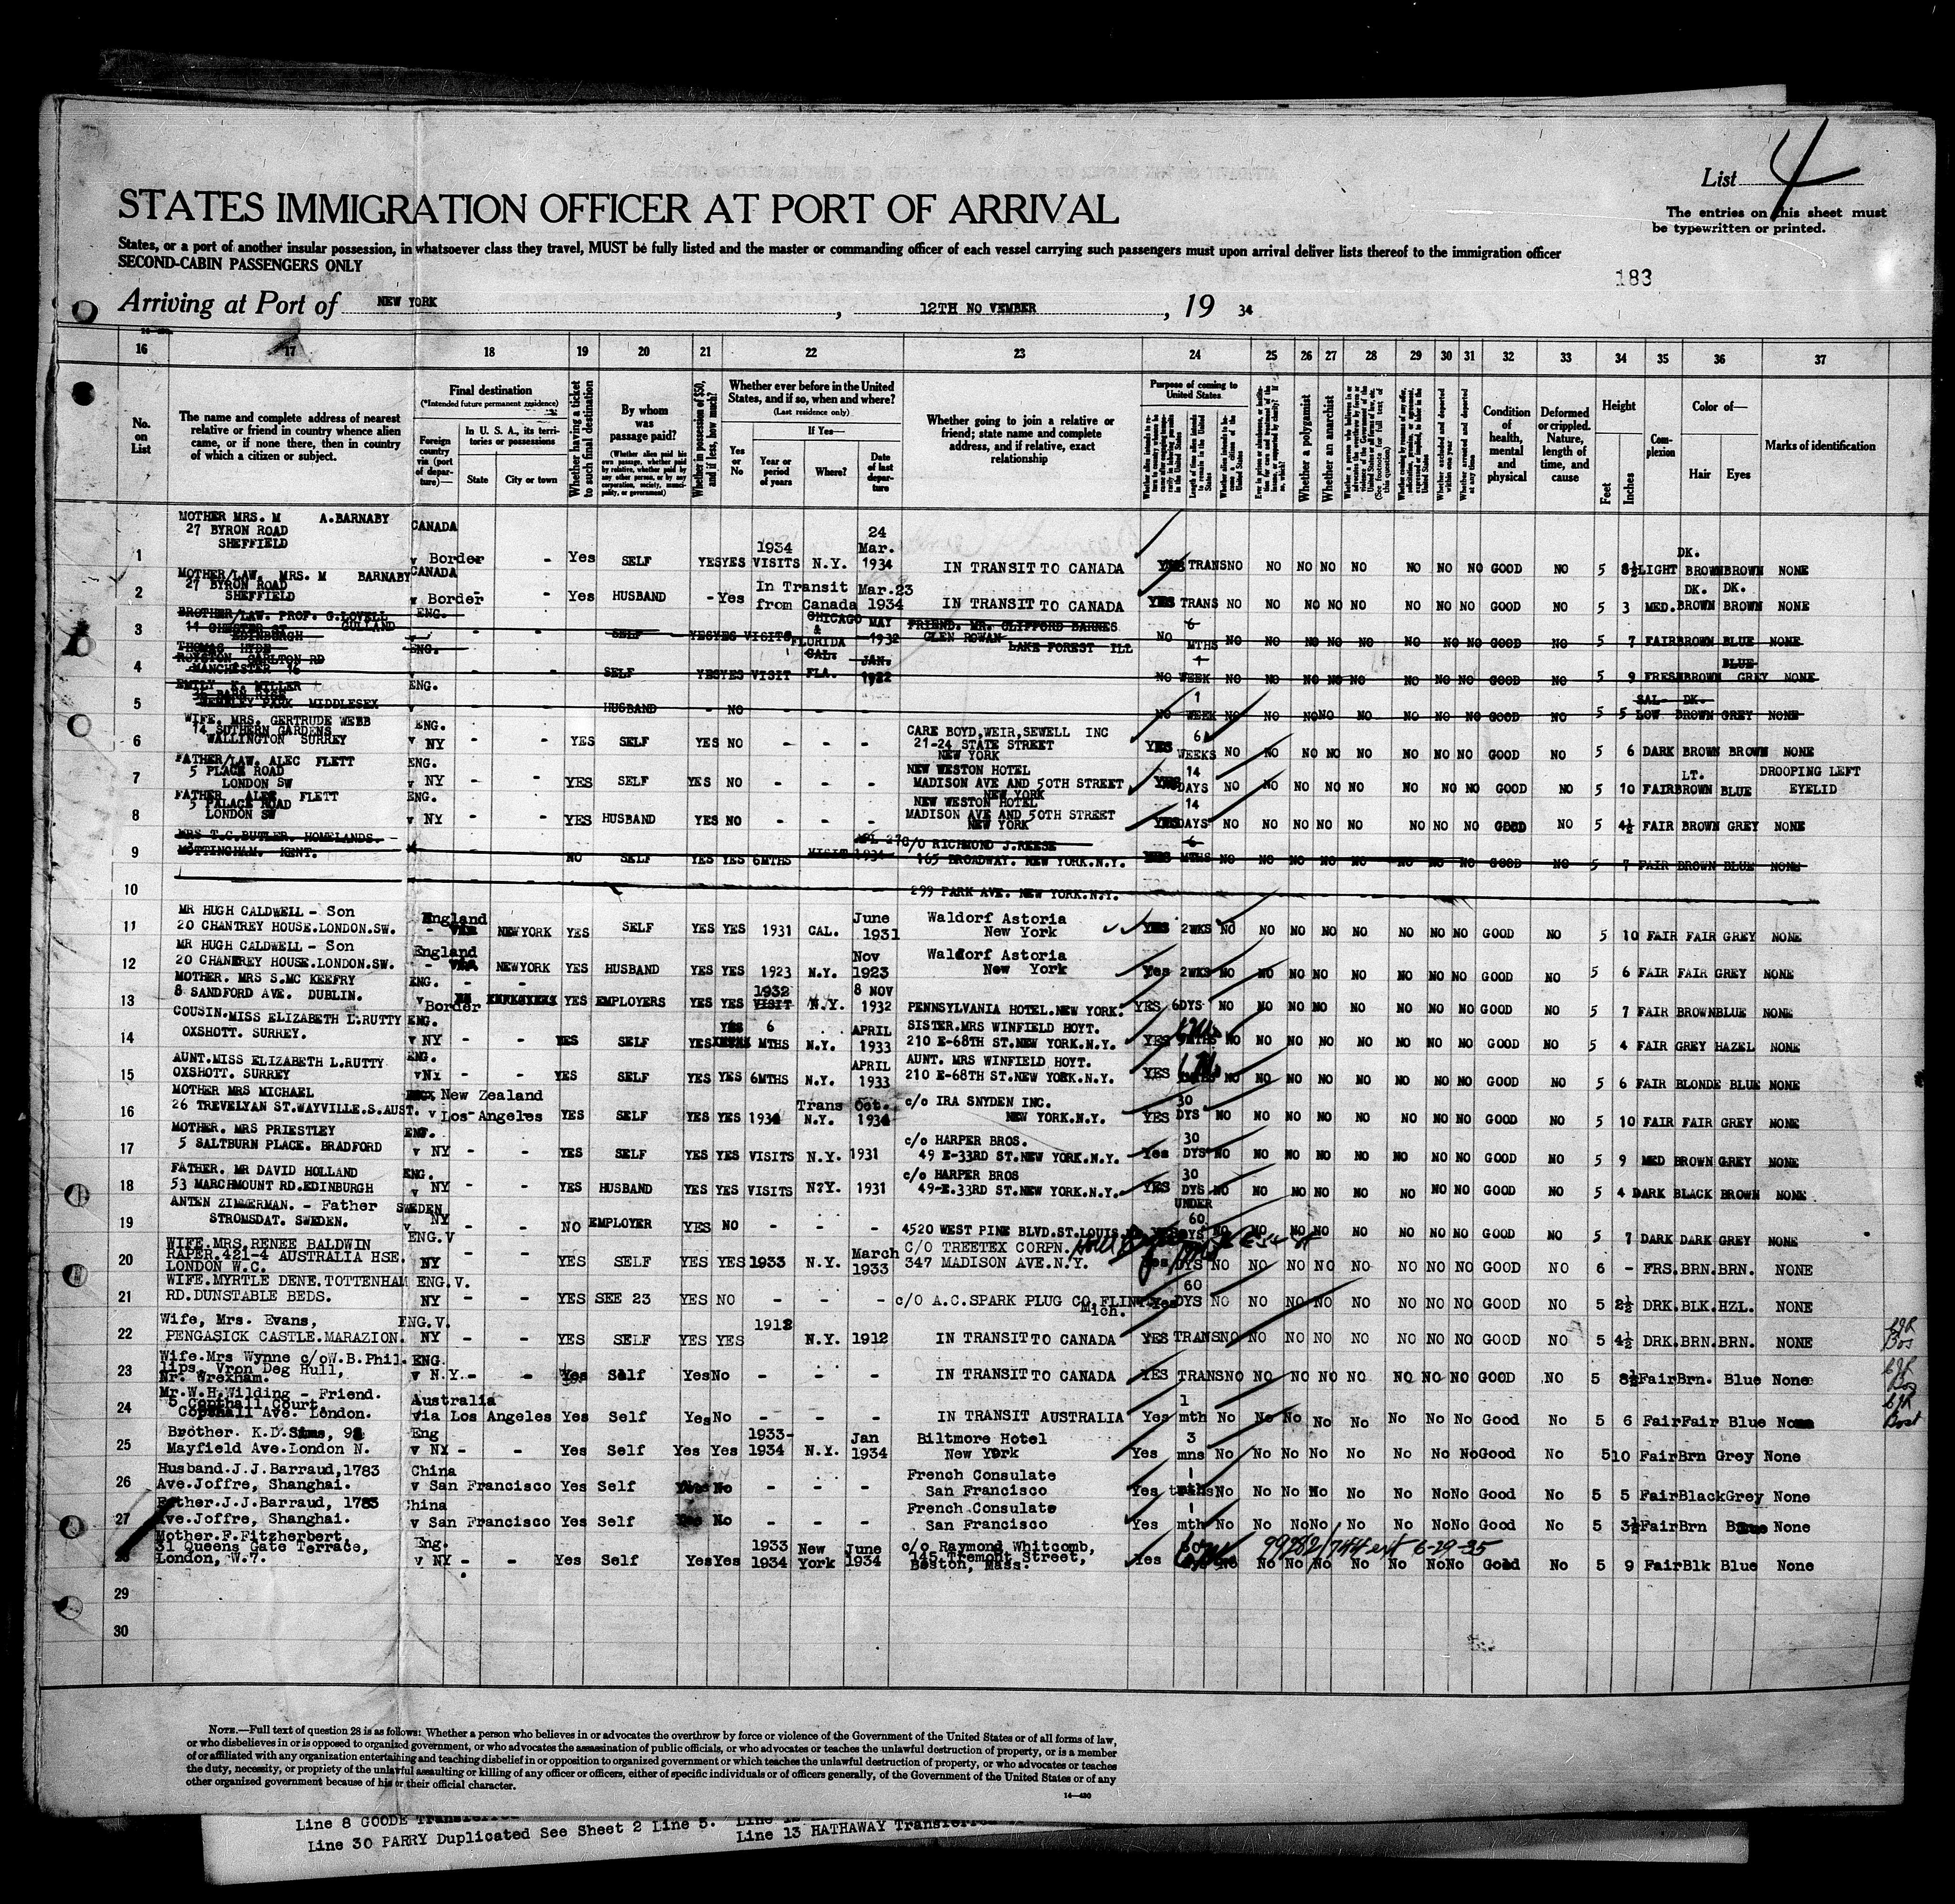 List 4
The entries on this sheet must
be typewritten or printed.
STATES IMMIGRATION OFFICER AT PORT OF ARRIVAL
States, or a port of another insular possession, in whatsoever class they travel, MUST be fully listed and the master or commanding officer of each vessel carrying such passengers must upon arrival deliver lists thereof to the immigration officer
SECOND-CABIN PASSENGERS ONLY
183
Arriving at Port of NEW YORK, 12TH NO VEMBER, 19 34
16 17 18 19 20 21 22 23 24 25 26 27 28 29 30 31 32 33 34 35 36 37
No. on List
The name and complete address of nearest relative or friend in country whence alien came, or if none there, then in country of which a citizen or subject.
Final destination
(*Intended future permanent residence)
Foreign country via (port of departure)—
In U. S. A., its territories or possessions
State City or town
Whether having a ticket to such final destination
By whom was passage paid?
(Whether alien paid his own passage, whether paid by relative, whether paid by any other person, or by any corporation, society, municipality, or government)
Whether in possession of $50, and if less, how much?
Whether ever before in the United States, and if so, when and where?
(Last residence only)
Yes or No
If Yes—
Year or period of years
Where?
Date of last departure
Whether going to join a relative or friend; state name and complete address, and if relative, exact relationship
Purpose of coming to United States
Whether a polygamist
Whether an anarchist
Whether excluded and deported within one year
Whether arrested and deported at any time
Condition of health, mental and physical
Deformed or crippled. Nature, length of time, and cause
Height
Feet Inches
Complexion
Color of—
Hair Eyes
Marks of identification
MOTHER MRS. M A.BARNABY
27 BYRON ROAD
SHEFFIELD
1 CANADA v Border - Yes SELF YES YES 1934 VISITS N.Y. 24 Mar. 1934 IN TRANSIT TO CANADA YES TRANS NO NO NO NO NO NO NO NO GOOD NO 5 8½ LIGHT DK. BROWN BROWN NONE
MOTHER/LAW. MRS. M BARNABY
27 BYRON ROAD
SHEFFIELD
2 CANADA v Border - Yes HUSBAND - Yes In Transit from Canada Mar.23 1934 IN TRANSIT TO CANADA YES TRANS NO NO NO NO NO NO NO NO GOOD NO 5 3 MED. DK. BROWN DK. BROWN NONE
BROTHER/LAW. PROF. G.LOVELL GULLAND
11 CHESTER ST
EDINBURGH
3 ENG. - - - SELF YES YES VISITS CHICAGO & FLORIDA MAY 1932 FRIEND. MR. CLIFFORD BARNES GLEN ROWAN LAKE FOREST ILL NO 6 MTHS NO NO NO NO NO NO NO NO GOOD NO 5 7 FAIR BROWN BLUE NONE
THOMAS HYDE
ROYSTON CARLTON RD
MANCHESTER 16
4 ENG. v - - - SELF YES YES VISIT CAL. FLA. JAN. 1922 NO 1 WEEK NO NO NO NO NO NO NO NO GOOD NO 5 9 FRESH BROWN BLUE GREY NONE
EMILY K. MILLER
WEMBLEY PARK MIDDLESEX
5 ENG. v HUSBAND - NO NO 1 WEEK NO NO NO NO NO NO NO NO GOOD NO 5 5 SALLOW DK. BROWN GREY NONE
WIFE. MRS. GERTRUDE WEBB
14 SUTHERN GARDENS
WALLINGTON SURREY
6 ENG. v NY - - YES SELF YES NO - - - CARE BOYD,WEIR,SEWELL INC 21-24 STATE STREET NEW YORK YES 6 WEEKS NO NO NO NO NO NO NO NO GOOD NO 5 6 DARK BROWN BROWN NONE
FATHER/LAW. ALEC FLETT
5 PLACE ROAD
LONDON SW
7 ENG. v NY - - YES SELF YES NO - - - NEW WESTON HOTEL MADISON AVE AND 50TH STREET NEW YORK YES 14 DAYS NO NO NO NO NO NO NO NO GOOD NO 5 10 FAIR LT. BROWN BLUE DROOPING LEFT EYELID
FATHER ALEC FLETT
5 PALACE ROAD
LONDON SW
8 ENG. v NY - - YES HUSBAND YES NO - - - NEW WESTON HOTEL MADISON AVE AND 50TH STREET NEW YORK YES 14 DAYS NO NO NO NO NO NO NO NO GOOD NO 5 4½ FAIR BROWN GREY NONE
MRS T.C.BUTLER. HOMELANDS.
MOTTINGHAM. KENT.
9 NO SELF YES YES 6MTHS VISIT APL 27 1934 C/O RICHMOND J.REESE 165 BROADWAY. NEW YORK.N.Y. YES 6 MTHS NO NO NO NO NO NO NO NO GOOD NO 5 7 FAIR BROWN BLUE NONE
10 299 PARK AVE. NEW YORK.N.Y.
MR HUGH CALDWELL - Son
20 CHANTREY HOUSE.LONDON.SW.
11 England - VIA NEWYORK YES SELF YES YES 1931 CAL. June 1931 Waldorf Astoria New York YES 2WKS NO NO NO NO NO NO NO NO GOOD NO 5 10 FAIR FAIR GREY NONE
MR HUGH CALDWELL - Son
20 CHANEREY HOUSE.LONDON.SW.
12 England - VIA NEWYORK YES HUSBAND YES YES 1923 N.Y. Nov 1923 Waldorf Astoria New York Yes 2WKS NO NO NO NO NO NO NO NO GOOD NO 5 6 FAIR FAIR GREY NONE
MOTHER. MRS S.MC KEEFRY
8 SANDFORD AVE. DUBLIN.
13 ENG. v Border YES EMPLOYERS YES YES 1932 VISIT N.Y. 8 NOV 1932 PENNSYLVANIA HOTEL.NEW YORK. YES 6DYS NO NO NO NO NO NO NO NO GOOD NO 5 7 FAIR BROWN BLUE NONE
COUSIN.MISS ELIZABETH L.RUTTY
OXSHOTT. SURREY.
14 ENG. v NY - - YES SELF YES YES 6 MTHS N.Y. APRIL 1933 SISTER.MRS WINFIELD HOYT. 210 E-68TH ST.NEW YORK.N.Y. YES MTHS NO NO NO NO NO NO NO NO GOOD NO 5 4 FAIR GREY HAZEL NONE
AUNT.MISS ELIZABETH L.RUTTY
OXSHOTT. SURREY
15 ENG. v NY - - YES SELF YES YES 6MTHS N.Y. APRIL 1933 AUNT. MRS WINFIELD HOYT. 210 E-68TH ST.NEW YORK.N.Y. YES NO NO NO NO NO NO NO NO GOOD NO 5 6 FAIR BLONDE BLUE NONE
MOTHER MRS MICHAEL
26 TREVELYAN ST.WAYVILLE.S.AUST.
16 New Zealand v Los-Angeles YES SELF YES YES 1934 Trans N.Y. Oct. 1934 c/o IRA SNYDEN INC. NEW YORK.N.Y. YES 30 DYS NO NO NO NO NO NO NO NO GOOD NO 5 10 FAIR FAIR GREY NONE
MOTHER. MRS PRIESTLEY
5 SALTBURN PLACE. BRADFORD
17 ENG. v NY - - YES SELF YES YES VISITS N.Y. 1931 c/o HARPER BROS. 49 E-33RD ST.NEW YORK.N.Y. Yes 30 DYS NO NO NO NO NO NO NO NO GOOD NO 5 9 MED BROWN GREY NONE
FATHER. MR DAVID HOLLAND
53 MARCHMOUNT RD.EDINBURGH
18 ENG. v NY - - YES HUSBAND YES YES VISITS N?Y. 1931 c/o HARPER BROS 49-E.33RD ST.NEW YORK.N.Y. YES 30 DYS NO NO NO NO NO NO NO NO GOOD NO 5 4 DARK BLACK BROWN NONE
ANTEN ZIMMERMAN. - Father
STROMSDAT. SWEDEN.
19 SWEDEN v NY - - NO EMPLOYER YES NO - - - 4520 WEST PINE BLVD.ST.LOUIS. UNDER 60 DYS NO NO NO NO NO NO NO NO GOOD NO 5 7 DARK DARK GREY NONE
WIFE.MRS.RENEE BALDWIN
RAPER.421-4 AUSTRALIA HSE.
LONDON W.C.
20 ENG.V NY - - YES SELF YES YES 1933 N.Y. March 1933 C/O TREETEX CORPN. 347 MADISON AVE.N.Y. Yes DYS NO NO NO NO NO NO NO NO GOOD NO 6 - FRS. BRN. BRN. NONE
WIFE.MYRTLE DENE.TOTTENHAM
RD.DUNSTABLE BEDS.
21 ENG.V. NY - - YES SEE 23 YES NO - - - c/o A.C.SPARK PLUG CO.FLINT Mich. Yes 60 DYS NO NO NO NO NO NO NO NO GOOD NO 5 2½ DRK. BLK. HZL. NONE
Wife, Mrs. Evans,
PENGASICK CASTLE.MARAZION.
22 ENG.V. NY - - YES SELF YES YES 1912 N.Y. 1912 IN TRANSIT TO CANADA YES TRANS NO NO NO NO NO NO NO NO GOOD NO 5 4½ DRK. BRN. BRN. NONE
Wife.Mrs Wynne c/oW.B.Phil.
lips, Vron Deg Hull,
Nr. Wrexham.
23 ENG v N.Y.- - Yes Self Yes No - - - IN TRANSIT TO CANADA YES TRANS NO NO NO NO NO NO NO NO GOOD NO 5 8½ Fair Brn. Blue None
Mr.W.H.Wilding - Friend.
5 Copthall Court,
Copthall Ave. London.
24 Australia via Los Angeles Yes Self Yes No - - - IN TRANSIT AUSTRALIA Yes 1 mth No No No No No No No No Good No 5 6 Fair Fair Blue None
Brother. K.D.Sims,
Mayfield Ave.London N.
25 Eng v NY - - Yes Self Yes Yes 1933-1934 N.Y. Jan 1934 Biltmore Hotel New York Yes 3 mns No No No No No No No No Good No 5 10 Fair Brn Grey None
Husband.J.J.Barraud,1783
Ave.Joffre, Shanghai.
26 China v San Francisco Yes Self Yes No - - - French Consulate San Francisco Yes No No No No No No No No Good No 5 5 Fair Black Grey None
Father.J.J.Barraud, 1783
Ave.Joffre, Shanghai.
27 China v San Francisco Yes Self Yes No - - - French Consulate San Francisco Yes 1 mth No No No No No No No No Good No 5 3½ Fair Brn Blue None
Mother.F.Fitzherbert,
31 Queens Gate Terrace,
London, W.7.
28 Eng. v NY - - Yes Self Yes Yes 1933 1934 New York June 1934 c/o Raymond Whitcomb, 145 Tremont Street, Boston, Mass. Yes No No No No No No No No Good No 5 9 Fair Blk Blue None
99282/744 ext 6-29-35
29
30
NOTE.—Full text of question 28 is as follows: Whether a person who believes in or advocates the overthrow by force or violence of the Government of the United States or of all forms of law,
or who disbelieves in or is opposed to organized government, or who advocates the assassination of public officials, or who advocates or teaches the unlawful destruction of property, or is a member
of or affiliated with any organization entertaining and teaching disbelief in or opposition to organized government or which teaches the unlawful destruction of property, or who advocates or teaches
the duty, necessity, or propriety of the unlawful assaulting or killing of any officer or officers, either of specific individuals or of officers generally, of the Government of the United States or of any
other organized government because of his or their official character.
14—430
Line 8 GOODE Transferred
Line 30 PARRY Duplicated See Sheet 2 Line 5.
Line 13 HATHAWAY Transferred